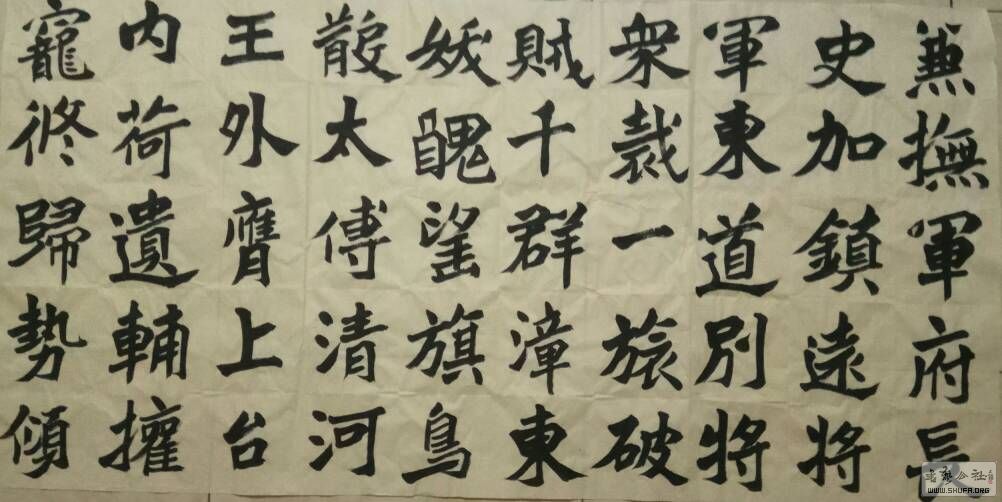 兼撫軍府長
史加鎮遠將
軍東道別將
衆裁一旅破
賊千群漳東
妖醜望旗鳥
散太傅清河
王外膺上台
内荷遺輔攉
寵攸歸勢傾
书艺公社
WWW.SHUFA.ORG